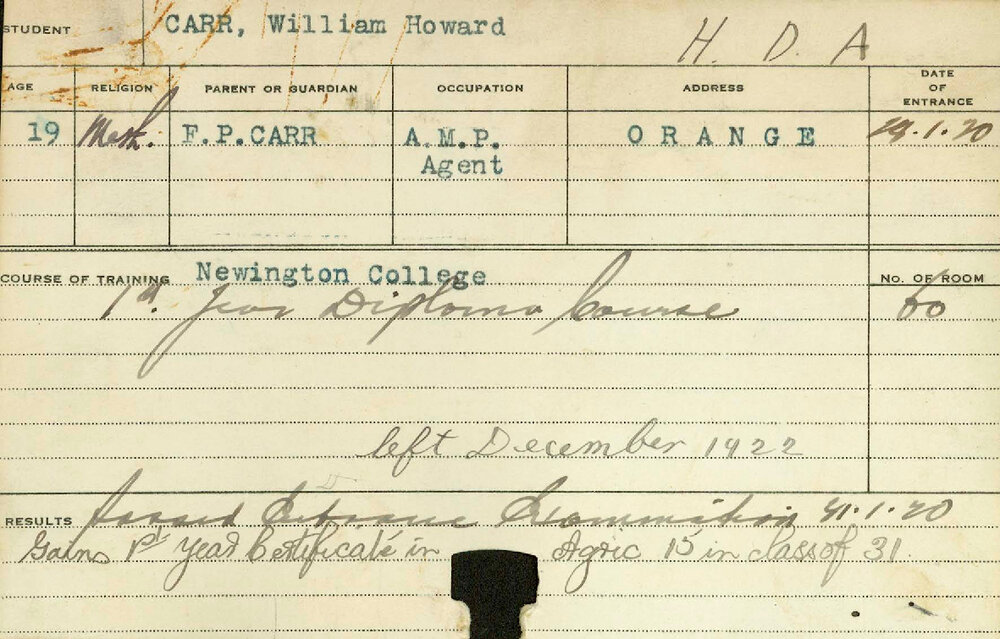 STUDENT CARR, William Howard H. D. A
AGE RELIGION PARENT OR GUARDIAN OCCUPATION ADDRESS DATE OF ENTRANCE
19 Meth. F.P.CARR A.M.P. ORANGE 29.1.20
Agent
COURSE OF TRAINING Newington College No. OF ROOM
1st. Year Diploma Course 60
left December 1922
RESULTS Passed Entrance Examination 1.20
Gains 1st Year Certificate in Agric 15 in class of 31.